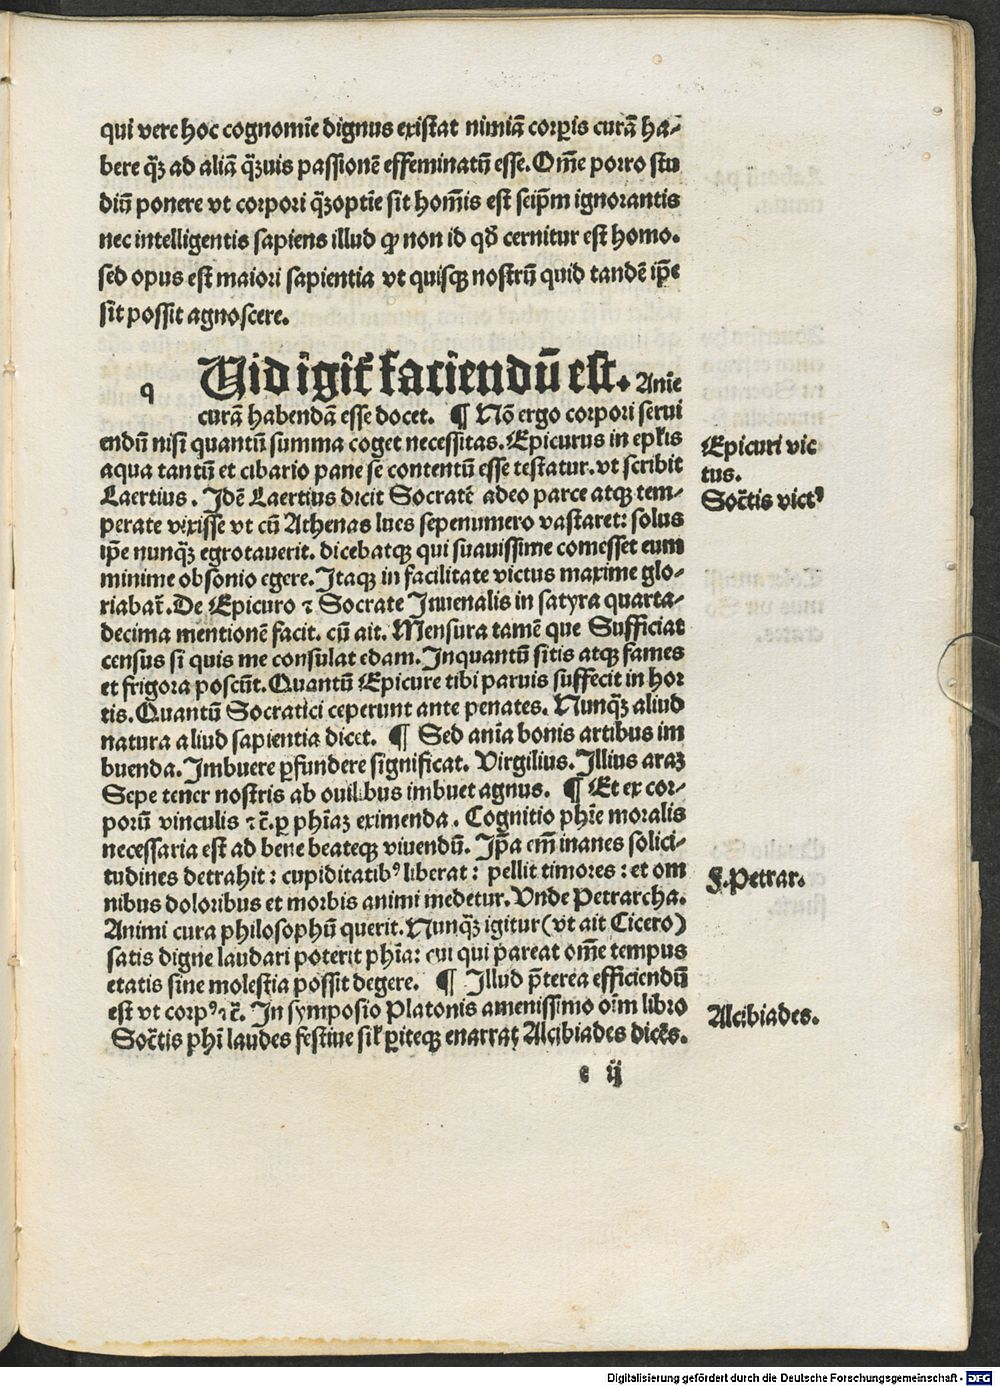 qui vere hoc cognomīe dignus existat nimiā corꝑis curā ha-
bere qȝ̄ ad aliā qȝ̄uis passionē effeminatū esse. Om̄e porro stu
diū ponere vt corpori qȝ̄optie sit hom̄is est seip̄m ignorantis
nec intelligentis sapiens illud ꝙ non id qđ cernitur est homo.
sed opus est maiori sapientia vt quisqꝫ nostrū quid tandē ip̄e
sit possit agnoscere.
q Uid igit̄ faciendū est. Anīe
curā habendā esse docet. ¶ Nō ergo corpori servi
endū nisi quantū summa coget necessitas. Epicurus in epl̄is
aqua tantū et cibario pane se contentū esse testatur. vt scribit
Laertius. Idē Laertius dicit Socratē adeo parce atqꝫ tem-
perate vixisse vt cū Athenas lues sepenumero vastaret: solus
ip̄e nunqȝ̄ egrotaverit. dicebatqꝫ qui suavissime comesset eum
minime obsonio egere. Itaqꝫ in facilitate victus maxime glo-
riabat̄. De Epicuro ⁊ Socrate Juuenalis in satyra quarta-
decima mentionē facit. cū ait. Mensura tamē que Sufficiat
census si quis me consulat edam. Inquantū sitis atqꝫ fames
et frigora poscūt. Quantū Epicure tibi parvis suffecit in hor
tis. Quantū Socratici ceperunt ante penates. Nunqȝ̄ aliud
natura aliud sapientia dicet. ¶ Sed anīa bonis artibus im
buenda. Imbuere ꝑfundere significat. Virgilius. Illius araȝ
Sepe tener nostris ab ouilibus imbuet agnus. ¶ Et ex cor-
porū vinculis ⁊c̄. ꝑ phīaȝ eximenda. Cognitio phīe moralis
necessaria est ad bene beateqꝫ viuendū. Ip̄a em̄ inanes solici-
tudines detrahit: cupiditatibꝰ liberat: pellit timores: et om
nibus doloribus et morbis animi medetur. Vnde Petrarcha.
Animi cura philosophū querit. Nunqȝ̄ igitur (vt ait Cicero)
satis digne laudari poterit phīa: cui qui pareat om̄e tempus
etatis sine molestia possit degere. ¶ Illud p̄terea efficiendū
est vt corpꝰ ⁊c̄. In symposio Platonis amenissimo oīm libro
Soc̄tis phī laudes festiue sil̄ ꝑiteqꝫ enarrat Alcibiades dicēs.
e ij
Epicuri vic
tus.
Soc̄tis victꝰ
F. Petrar.
Alcibiades.
Digitalisierung gefördert durch die Deutsche Forschungsgemeinschaft - DFG